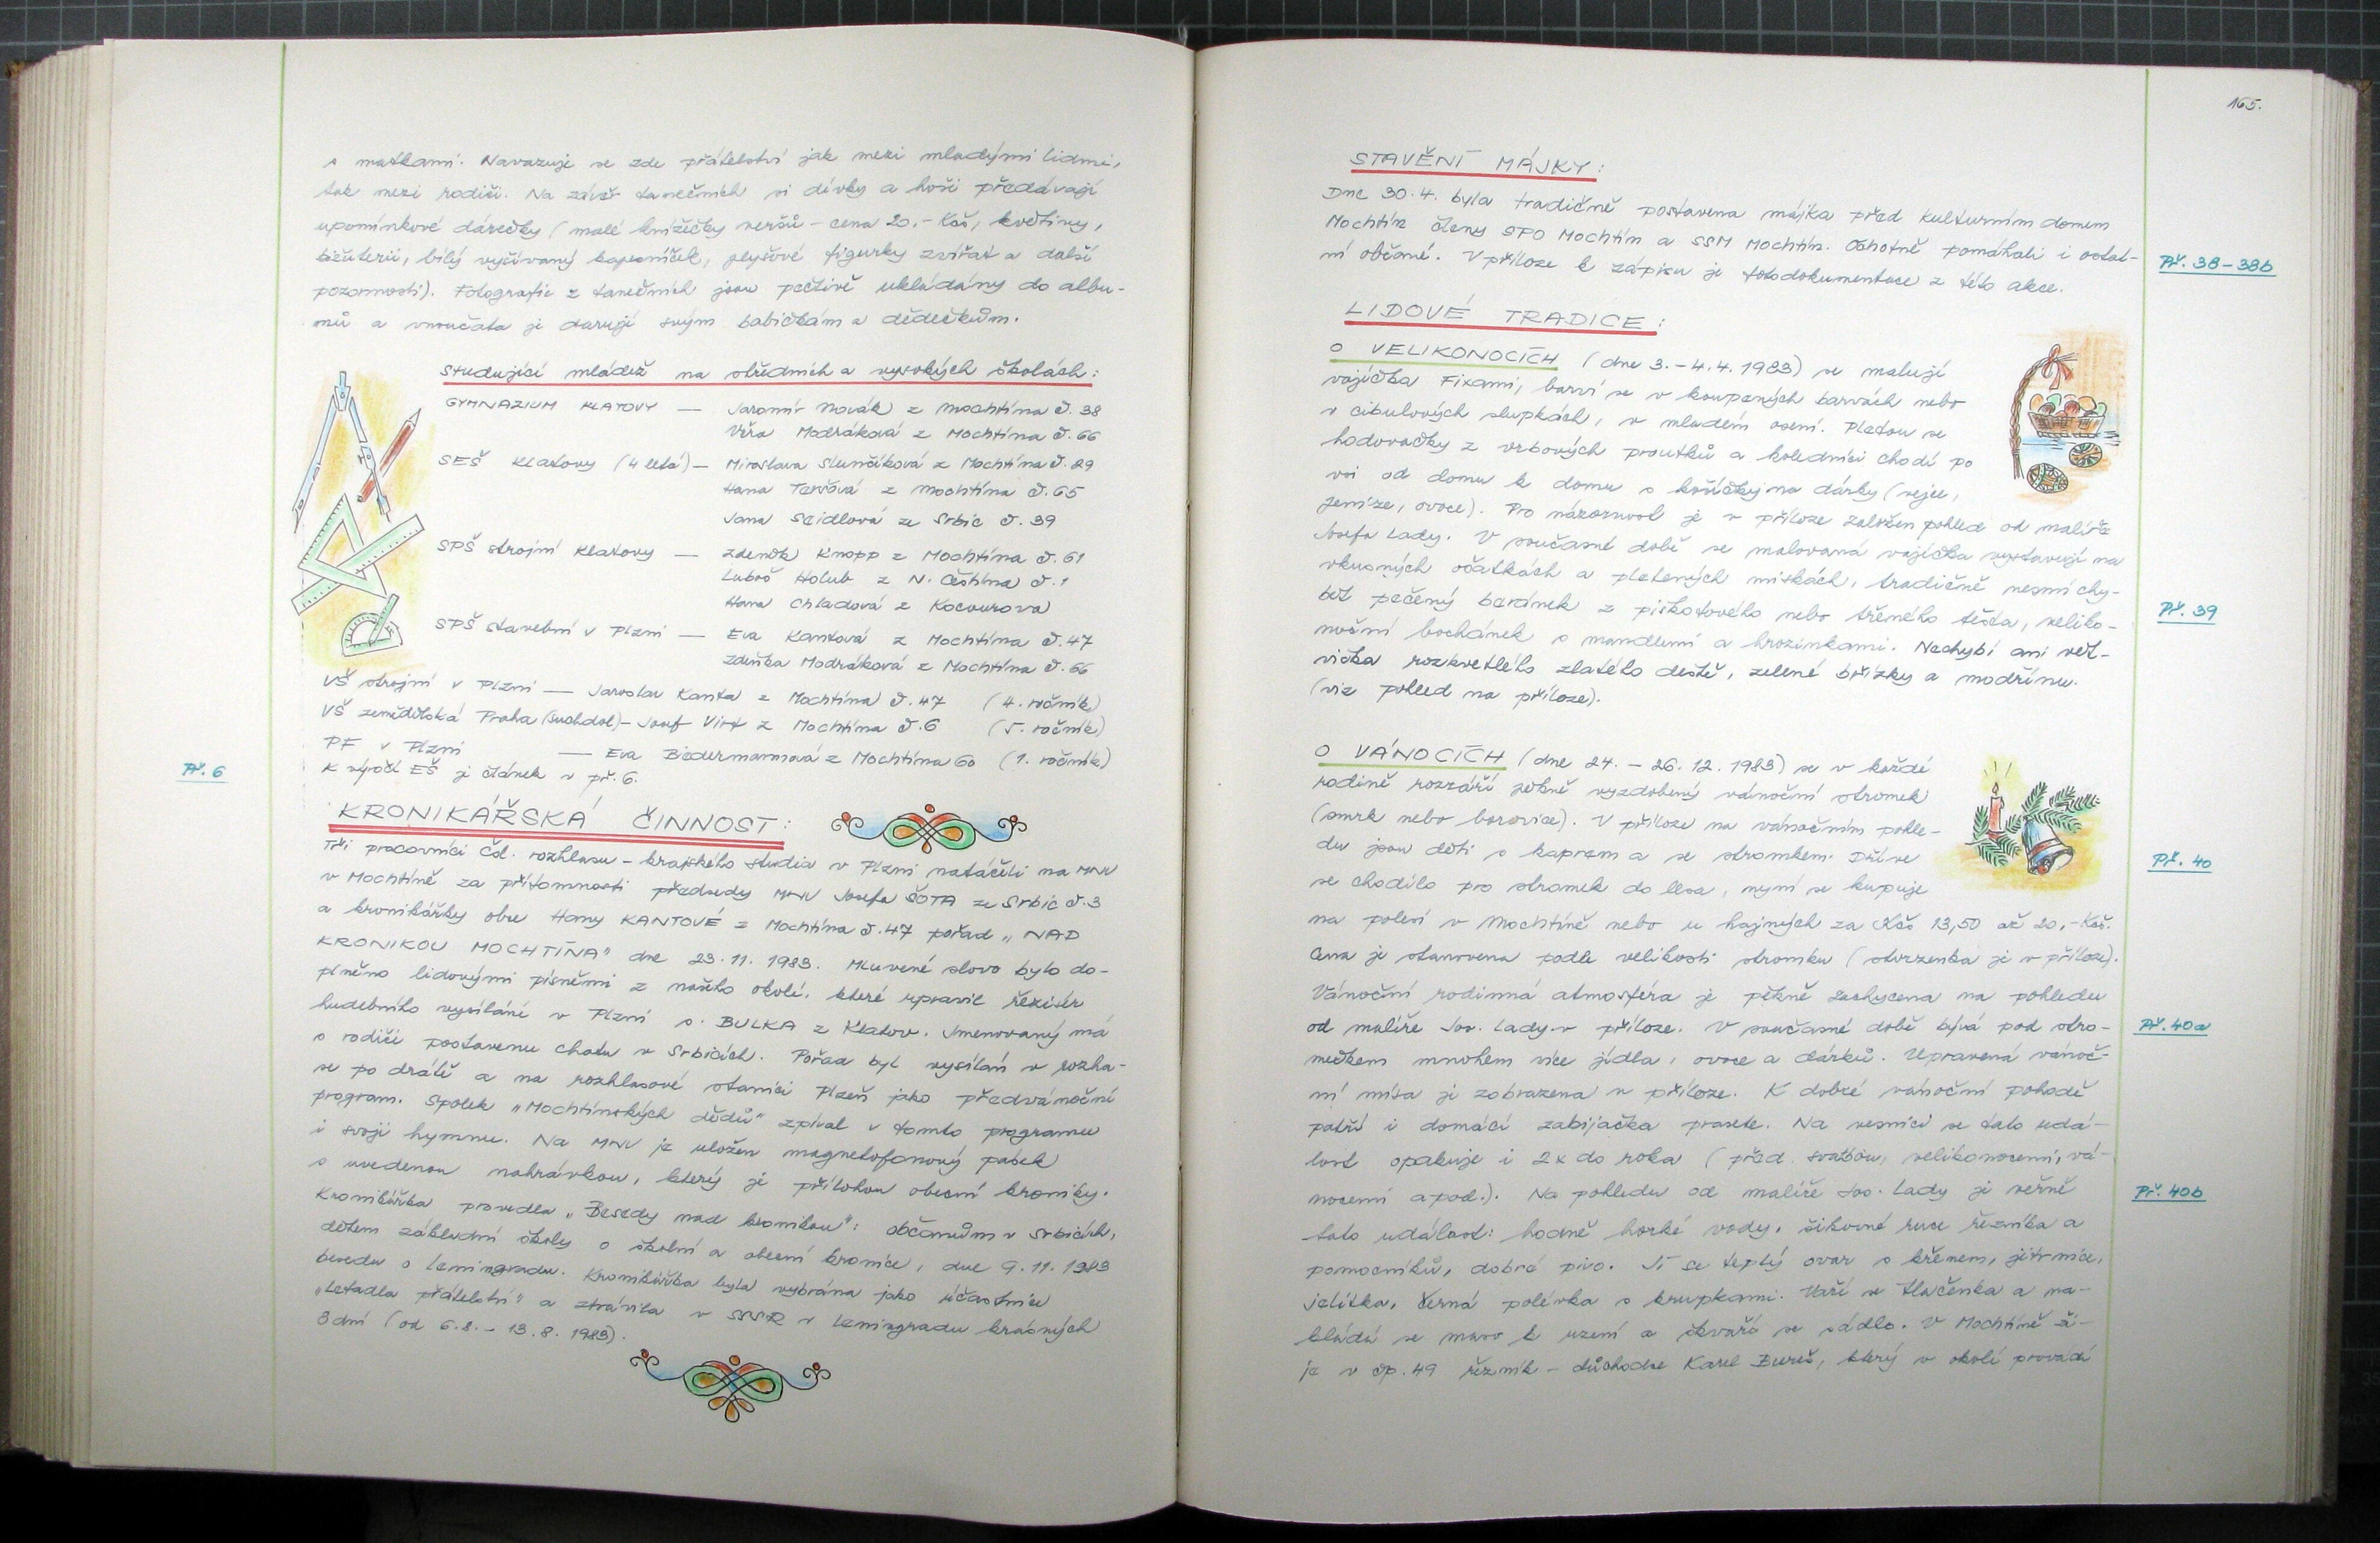 s matkami. Navazuje se zde přátelství jak mezi mladými lidmi,
tak mezi rodiči. Na závěr tanečních si dívky a hoši předávají
upomínkové dárečky (malé knížečky veršů – cena 20,- Kčs, květiny,
bižuterii, bílý vyšívaný kapesníček, plyšové figurky zvířat a další
pozornosti). Fotografie z tanečních jsou pečlivě ukládány do albu-
mů a vnoučata je darují svým babičkám a dědečkům.
Studující mládež na středních a vysokých školách:
GYMNAZIUM KLATOVY — Jaromír Novák z Mochtína č. 38
Věra Modráková z Mochtína č. 66
SEŠ Klatovy (4 letá) — Miroslava Slunčíková z Mochtína č. 29
Hana Teršová z Mochtína č. 65
Jana Seidlová ze Srbic č. 39
SPŠ strojní Klatovy — Zdeněk Knopp z Mochtína č. 61
Luboš Holub z N. Čestína č. 1
Hana Chladová z Kocourova
SPŠ stavební v Plzni — Eva Kantová z Mochtína č. 47
Zdeňka Modráková z Mochtína č. 66
VŠ strojní v Plzni — Jaroslav Kanta z Mochtína č. 47 (4. ročník)
VŠ zemědělská Praha (Suchdol) – Josef Virt z Mochtína č. 6 (5. ročník)
PF v Plzni — Eva Biedermannová z Mochtína 60 (1. ročník)
K výročí EŠ je článek v př. 6.
Př. 6
KRONIKÁŘSKÁ ČINNOST:
Tři pracovníci Čsl. rozhlasu – krajského studia v Plzni natáčeli na MNV
v Mochtíně za přítomnosti předsedy MNV Josefa ŠOTA ze Srbic č. 3
a kronikářky obce Hany KANTOVÉ z Mochtína č. 47 pořad „NAD
KRONIKOU MOCHTÍNA" dne 23. 11. 1983. Mluvené slovo bylo do-
plněno lidovými písněmi z našeho okolí, které upravil režisér
hudebního vysílání v Plzni s. BULKA z Klatov. Jmenovaný má
s rodiči postavenu chatu v Srbicích. Pořad byl vysílán v rozhla-
se po drátě a na rozhlasové stanici Plzeň jako předvánoční
program. Spolek „Mochtínských dědů" zpíval v tomto programu
i svoji hymnu. Na MNV je uložen magnetofonový pásek
s uvedenou nahrávkou, který je přílohou obecní kroniky.
Kronikářka provedla „Besedy nad kronikou": občanům v Srbicích,
dětem základní školy o školní a obecní kronice, dne 9. 11. 1983
besedu o Leningradu. Kronikářka byla vybrána jako účastnice
„Letadla přátelství" a strávila v SSSR v Leningradu krásných
8 dní (od 6. 8. – 13. 8. 1983).
165.
STAVĚNÍ MÁJKY:
Dne 30. 4. byla tradičně postavena májka před kulturním domem
Mochtín členy SPO Mochtín a SSM Mochtín. Ochotně pomáhali i ostat-
ní občané. V příloze k zápisu je fotodokumentace z této akce.
Př. 38 – 38b
LIDOVÉ TRADICE:
O VELIKONOCÍCH (dne 3. – 4. 4. 1983) se malují
vajíčka Fixami, barví se v koupených barvách nebo
v cibulových slupkách, v mladém osení. Pletou se
hodovačky z vrbových proutků a koledníci chodí po
vsi od domu k domu s košíčky na dárky (vejce,
peníze, ovoce). Pro názornost je v příloze založen pohled od malíře
Josefa Lady. V současné době se malovaná vajíčka vystavují na
vkusných ošatkách a pletených miskách, tradičně nesmí chy-
bět pečený beránek z piškotového nebo třeného těsta, veliko-
noční bochánek s mandlemi a hrozinkami. Nechybí ani vět-
vička rozkvetlého zlatého deště, zelené břízky a modřínu.
(viz pohled na příloze).
Př. 39
O VÁNOCÍCH (dne 24. – 26. 12. 1983) se v každé
rodině rozzáří pěkně vyzdobený vánoční stromek
(smrk nebo borovice). V příloze na vánočním pohle-
du jsou děti s kaprem a se stromkem. Dříve
se chodilo pro stromek do lesa, nyní se kupuje
na polesí v Mochtíně nebo u hajných za Kčs 13,50 až 20,- Kčs.
Cena je stanovena podle velikosti stromku (stvrzenka je v příloze).
Vánoční rodinná atmosféra je pěkně zachycena na pohledu
od malíře Jos. Lady v příloze. V současné době bývá pod stro-
mečkem mnohem více jídla, ovoce a dárků. Upravená vánoč-
ní mísa je zobrazena v příloze. K dobré vánoční pohodě
patří i domácí zabijačka prasete. Na vesnici se tato udá-
lost opakuje i 2x do roka (před svatbou, velikonocemi, vá-
nocemi apod.). Na pohledu od malíře Jos. Lady je věrně
tato událost: hodně horké vody, šikovné ruce řezníka a
pomocníků, dobré pivo. Jí se teplý ovar s křenem, jitrnice,
jelítka, černá polévka s krupkami. Vaří se tlačenka a na-
kládá se maso k uzení a škvaří se sádlo. V Mochtíně ži-
je v čp. 49 řezník – důchodce Karel Bureš, který v okolí provádí
Př. 40
Př. 40a
Př. 40b